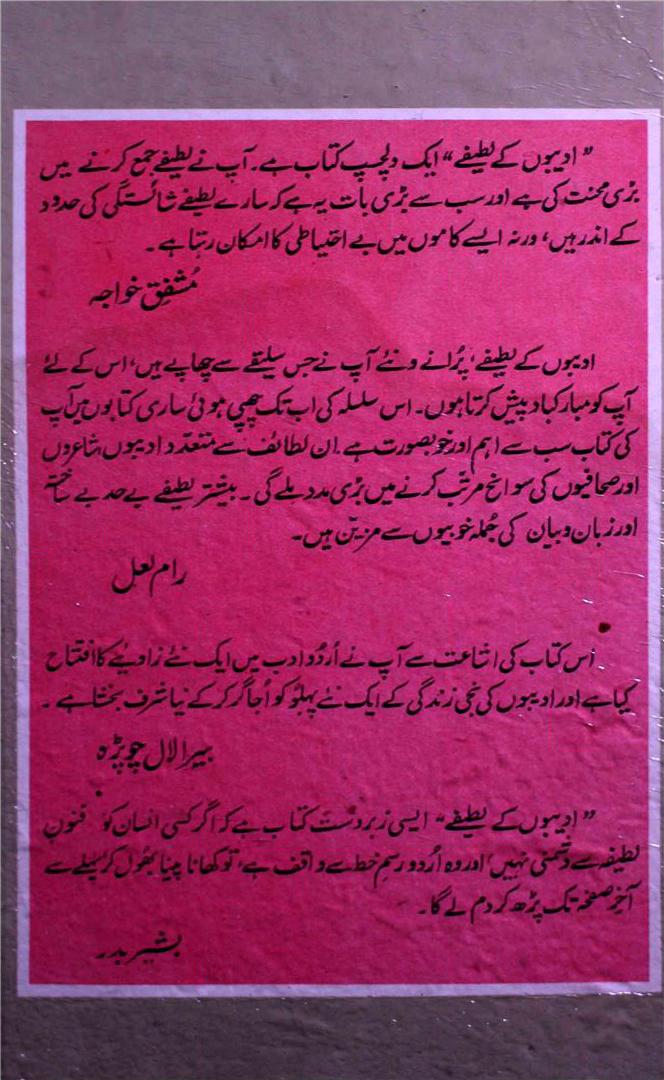 ”ادیبوں کے لطیفے“ ایک دلچسپ کتاب ہے۔ آپ نے لطیفے جمع کرنے میں
بڑی محنت کی ہے اور سب سے بڑی بات یہ ہے کہ سارے لطیفے شائستگی کی حدود
کے اندر ہیں، ورنہ ایسے کاموں میں بے احتیاطی کا امکان رہتا ہے۔
مُشفِق خواجہ
ادیبوں کے لطیفے، پُرانے و نئے آپ نے جس سلیقے سے چھاپے ہیں، اس کے لئے
آپ کو مبارکباد پیش کرتا ہوں۔ اس سلسلہ کی اب تک چھپی ہوئی ساری کتابوں میں آپ
کی کتاب سب سے اہم اور خوبصورت ہے۔ ان لطائف سے متعدّد ادیبوں، شاعروں
اور صحافیوں کی سوانح مرتّب کرنے میں بڑی مدد ملے گی۔ بیشتر لطیفے بے حد بے ساختہ
اور زبان و بیان کی جُملہ خوبیوں سے مزیّن ہیں۔
رام لعل
اس کتاب کی اشاعت سے آپ نے اُردُو ادب میں ایک نئے زاویئے کا افتتاح
کیا ہے اور ادیبوں کی نجی زندگی کے ایک نئے پہلو کو اُجاگر کر کے نیا شرف بخشا ہے۔
ہیرا لال چوپڑہ
”ادیبوں کے لطیفے“ ایسی زبردست کتاب ہے کہ اگر کسی انسان کو فنونِ
لطیفہ سے دُشمنی نہیں، اور وہ اُردو رسمِ خط سے واقف ہے، تو کھانا پینا بھُول کر پہلے سے
آخر صفحہ تک پڑھ کر دم لے گا۔
بشیر بدر